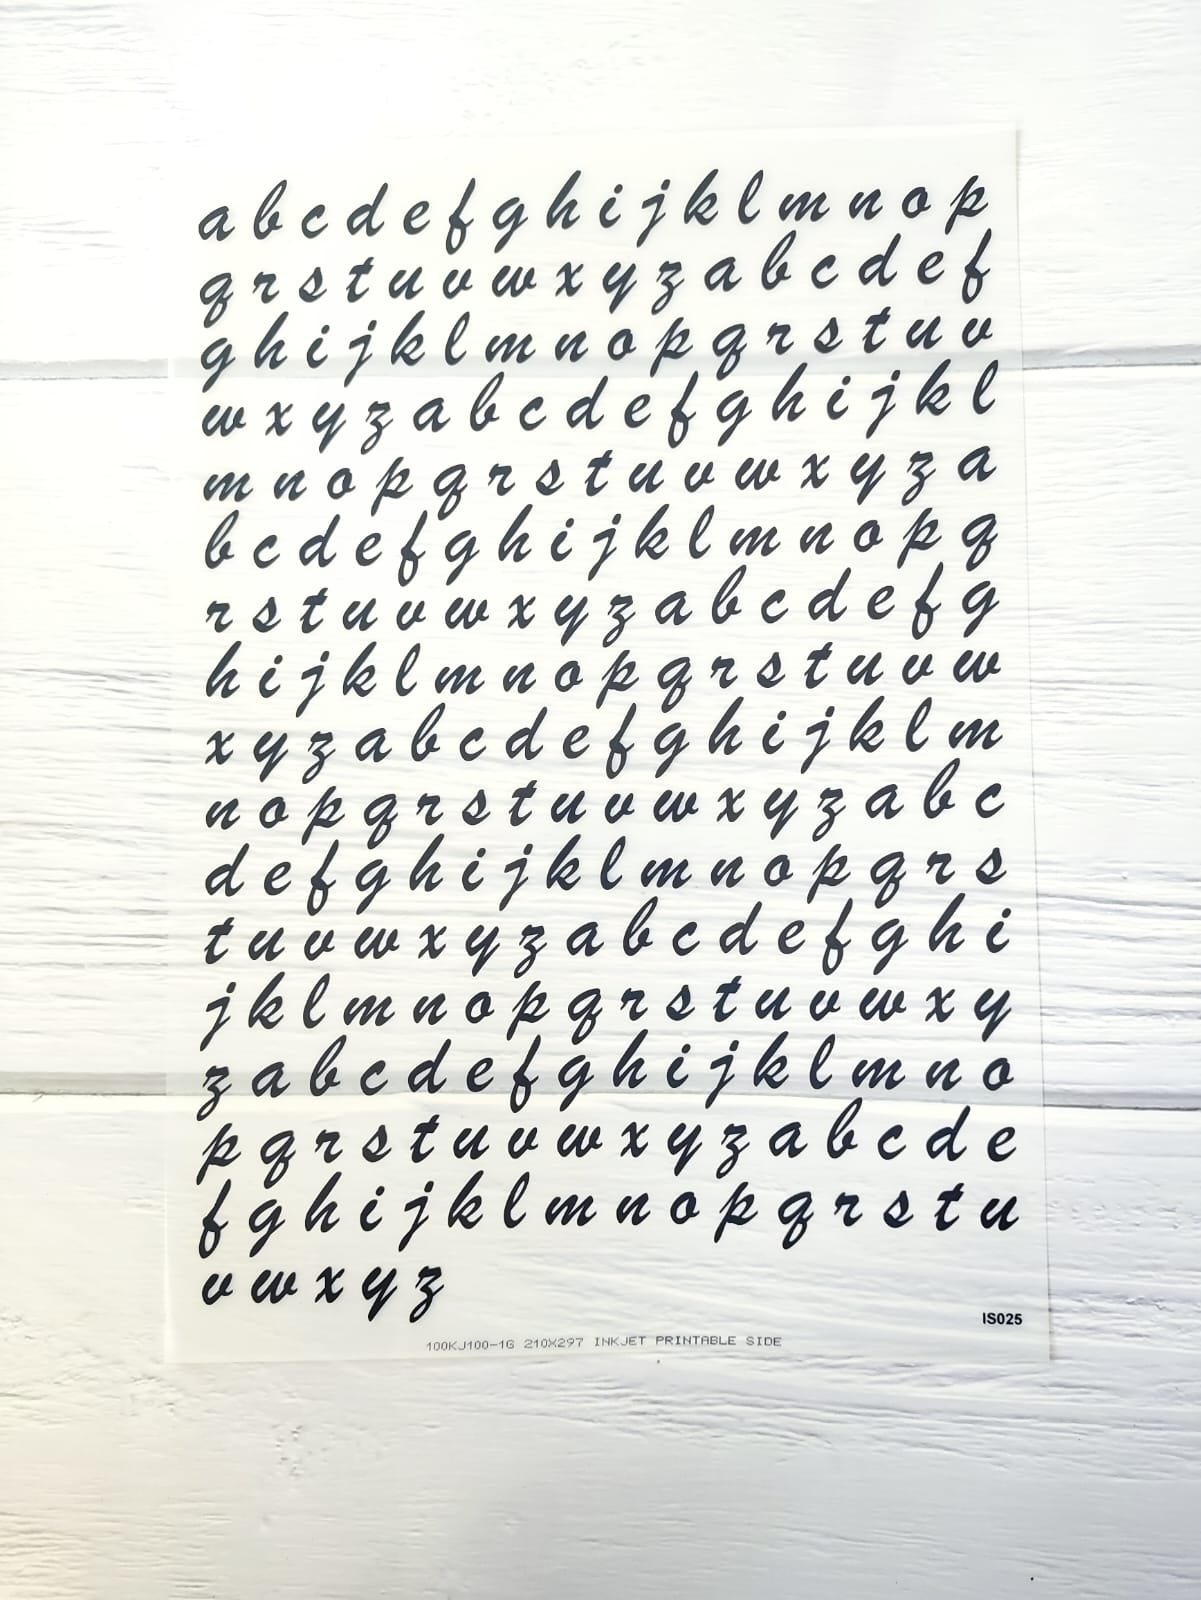 a b c d e f g h i j k l m n o p
q r s t u v w x y z a b c d e f
g h i j k l m n o p q r s t u v
w x y z a b c d e f g h i j k l
m n o p q r s t u v w x y z a
b c d e f g h i j k l m n o p q
r s t u v w x y z a b c d e f g
h i j k l m n o p q r s t u v w
x y z a b c d e f g h i j k l m
n o p q r s t u v w x y z a b c
d e f g h i j k l m n o p q r s
t u v w x y z a b c d e f g h i
j k l m n o p q r s t u v w x y
z a b c d e f g h i j k l m n o
p q r s t u v w x y z a b c d e
f g h i j k l m n o p q r s t u
v w x y z
IS025
100KJ100-1G 210X297 INKJET PRINTABLE SIDE